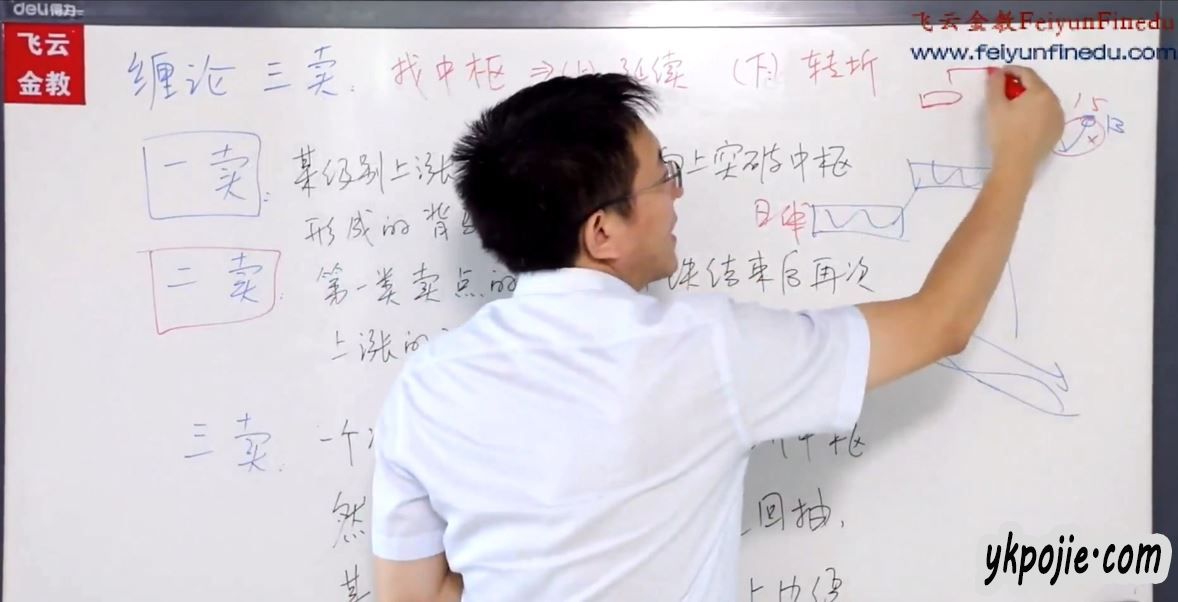 deli得力
飞云
金教
飞云金教FeiyunFinedu
www.feiyunfinedu.com
缠论 三卖: 找中枢 ⇒(上) 延续 (下) 转折
15
13
一卖: 某级别上涨 向上突破中枢
形成的背
日线
二卖: 第一类卖点的 结束后再次
上涨的
三卖: 一个 中枢
然 回抽,
某
ykpojie·com